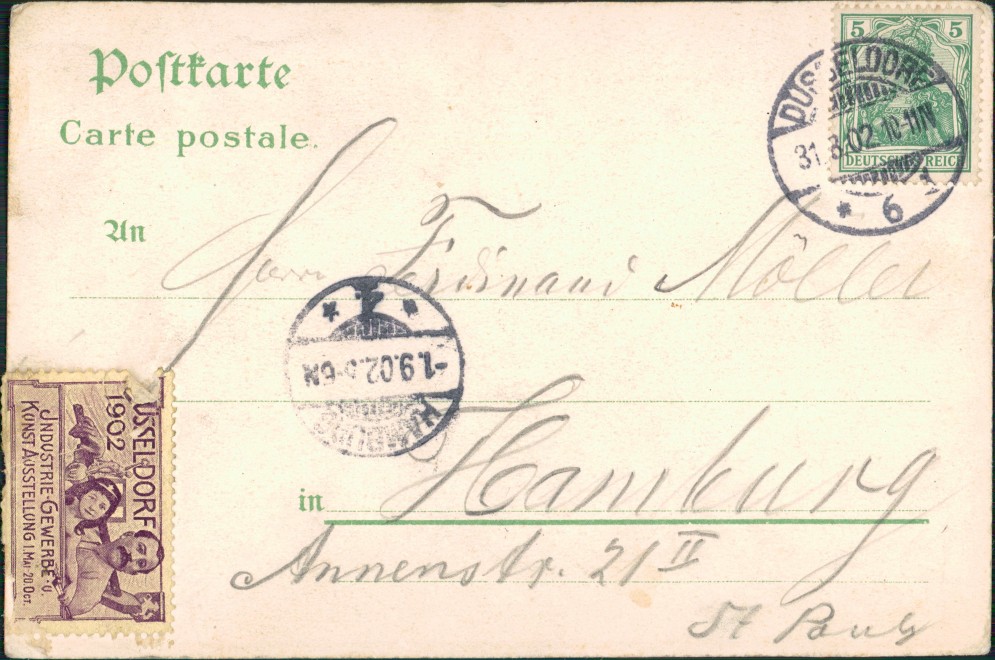 Postkarte
Carte postale.
5 5
DEUTSCHES REICH
DÜSSELDORF
31.8.02.10-11N
* 6 1
An
Herrn Ferdinand Möller
* 4. *
-1.9.02.5-6N
HAMBURG
in Hamburg
Annenstr. 21 II
St Pauli
DÜSSELDORF
1902
INDUSTRIE-GEWERBE-U.
KUNSTAUSSTELLUNG 1.MAI-20.OCT.